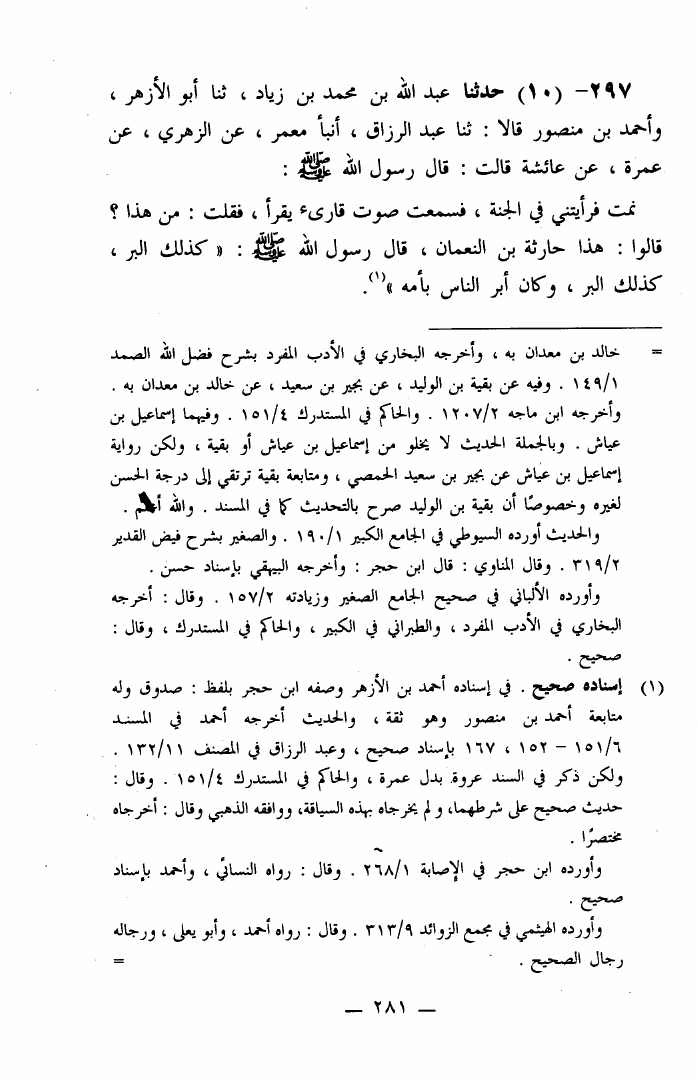 ٢٩٧- (١٠) حدثنا عبد الله بن محمد بن زياد ، ثنا أبو الأزهر ،
وأحمد بن منصور قالا : ثنا عبد الرزاق ، أنبأ معمر ، عن الزهري ، عن
عمرة ، عن عائشة قالت : قال رسول الله ﷺ :
نمت فرأيتني في الجنة ، فسمعت صوت قارىء يقرأ ، فقلت : من هذا ؟
قالوا : هذا حارثة بن النعمان ، قال رسول الله ﷺ : « كذلك البر ،
كذلك البر ، وكان أبر الناس بأمه »(١).
= خالد بن معدان به ، وأخرجه البخاري في الأدب المفرد بشرح فضل الله الصمد
١٤٩/١ . وفيه عن بقية بن الوليد ، عن بجير بن سعيد ، عن خالد بن معدان به .
وأخرجه ابن ماجه ١٢٠٧/٢ . والحاكم في المستدرك ١٥١/٤ . وفيهما إسماعيل بن
عياش . وبالجملة الحديث لا يخلو من إسماعيل بن عياش أو بقية ، ولكن رواية
إسماعيل بن عياش عن بجير بن سعيد الحمصي ، ومتابعة بقية ترتقي إلى درجة الحسن
لغيره وخصوصًا أن بقية بن الوليد صرح بالتحديث كما في المسند . والله أعلم .
والحديث أورده السيوطي في الجامع الكبير ١٩٠/١ . والصغير بشرح فيض القدير
٣١٩/٢ . وقال المناوي : قال ابن حجر : وأخرجه البيهقي بإسناد حسن .
وأورده الألباني في صحيح الجامع الصغير وزيادته ١٥٧/٢ . وقال : أخرجه
البخاري في الأدب المفرد ، والطبراني في الكبير ، والحاكم في المستدرك ، وقال :
صحيح .
(١) إسناده صحيح . في إسناده أحمد بن الأزهر وصفه ابن حجر بلفظ : صدوق وله
متابعة أحمد بن منصور وهو ثقة ، والحديث أخرجه أحمد في المسند
١٥١/٦ – ١٥٢ ، ١٦٧ بإسناد صحيح ، وعبد الرزاق في المصنف ١٣٢/١١ .
ولكن ذكر في السند عروة بدل عمرة ، والحاكم في المستدرك ١٥١/٤ . وقال :
حديث صحيح على شرطهما، ولم يخرجاه بهذه السياقة، ووافقه الذهبي وقال : أخرجاه
مختصرًا .
وأورده ابن حجر في الإصابة ٢٦٨/١ . وقال : رواه النسائي ، وأحمد بإسناد
صحيح .
وأورده الهيثمي في مجمع الزوائد ٣١٣/٩ . وقال : رواه أحمد ، وأبو يعلى ، ورجاله
رجال الصحيح . =
— ٢٨١ —